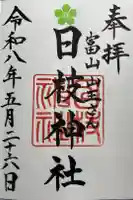 奉拝
富山山王さん
日枝神社
令和八年五月二十六日